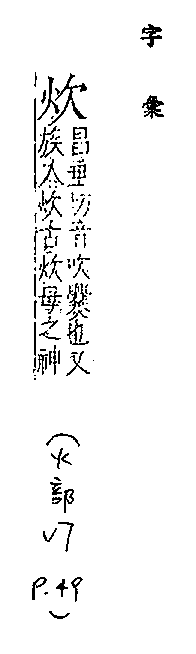 字彙
炊 昌垂切音吹爨也又
族人炊古炊母之神
(火部
V7
P.49)